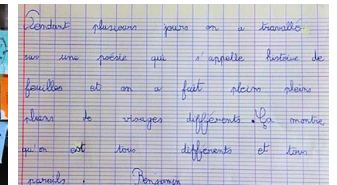 Pendant plusieurs jours on a travaillé
sur une poésie qui s'appelle histoire de
feuilles et on a fait pleins pleins
pleins de visages différents. Ça montre
qu'on est tous différents et tous
pareils. Benjamin